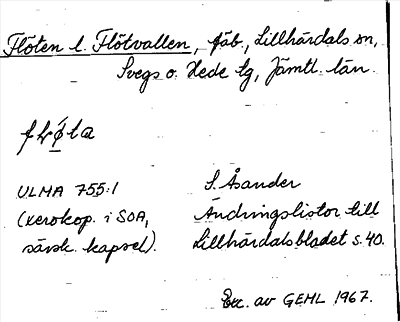 Flöten l. Flötvallen, fäb., Lillhärdals sn,
Svegs o. Hede tg, Jämtl. län.
flǿta
ULMA 755:1
(xerokop. i SOA,
särsk. kapsel).
S. Åsander
Ändringslistor till
Lillhärdalsbladet s. 40.
Exc. av GEHL 1967.